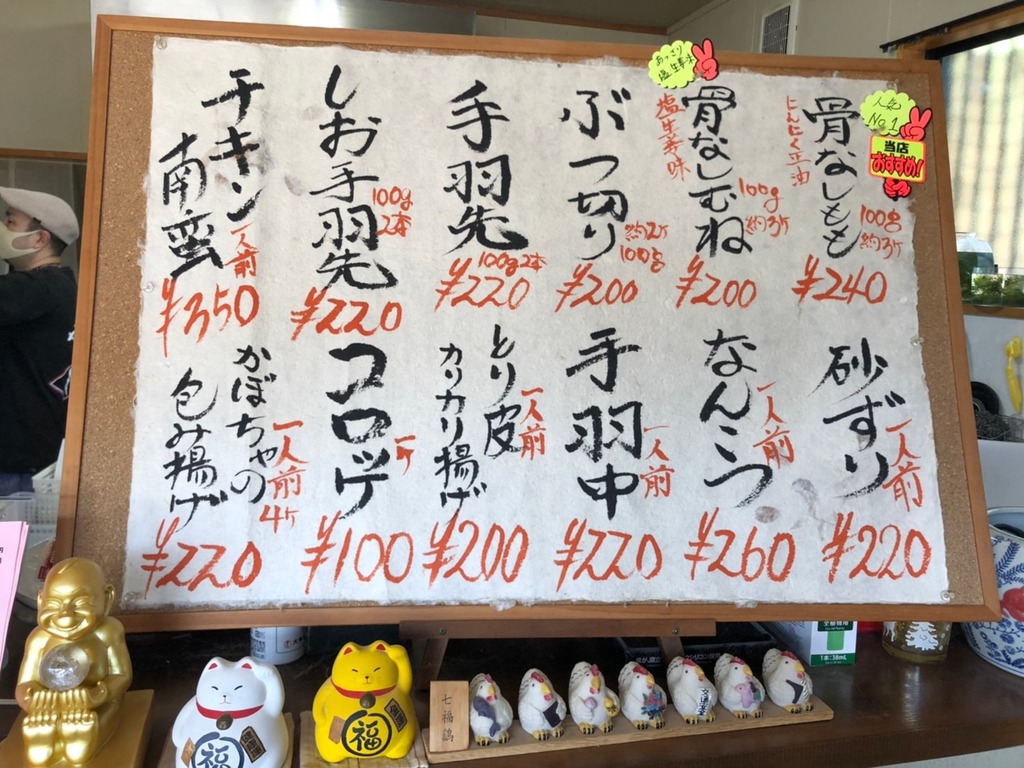 人気
No.1
当店
おすすめ!
にんにく正油
骨なしもも
100g
約3ヶ
¥240
あっさり
塩生姜味
塩生姜味
骨なしむね
100g
約3ヶ
¥200
ぶつ切り
約2ヶ
100g
¥200
手羽先
100g2本
¥220
しお手羽先
100g
2本
¥220
チキン
南蛮
一人前
¥350
砂ずり
一人前
¥220
なんこつ
一人前
¥260
手羽中
一人前
¥220
とり皮
カリカリ揚げ
一人前
¥200
コロッケ
¥100
かぼちゃの
包み揚げ
一人前
4ヶ
¥220
七福鶏
福
福